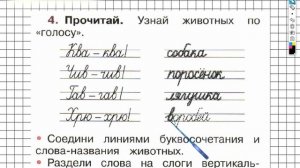 4. Прочитай. Узнай животных по
«голосу».
Ква – ква! собака
Чив – чив! поросёнок
Гав – гав! лягушка
Хрю – хрю! воробей
• Соедини линиями буквосочетания и
слова-названия животных.
• Раздели слова на слоги вертикаль-